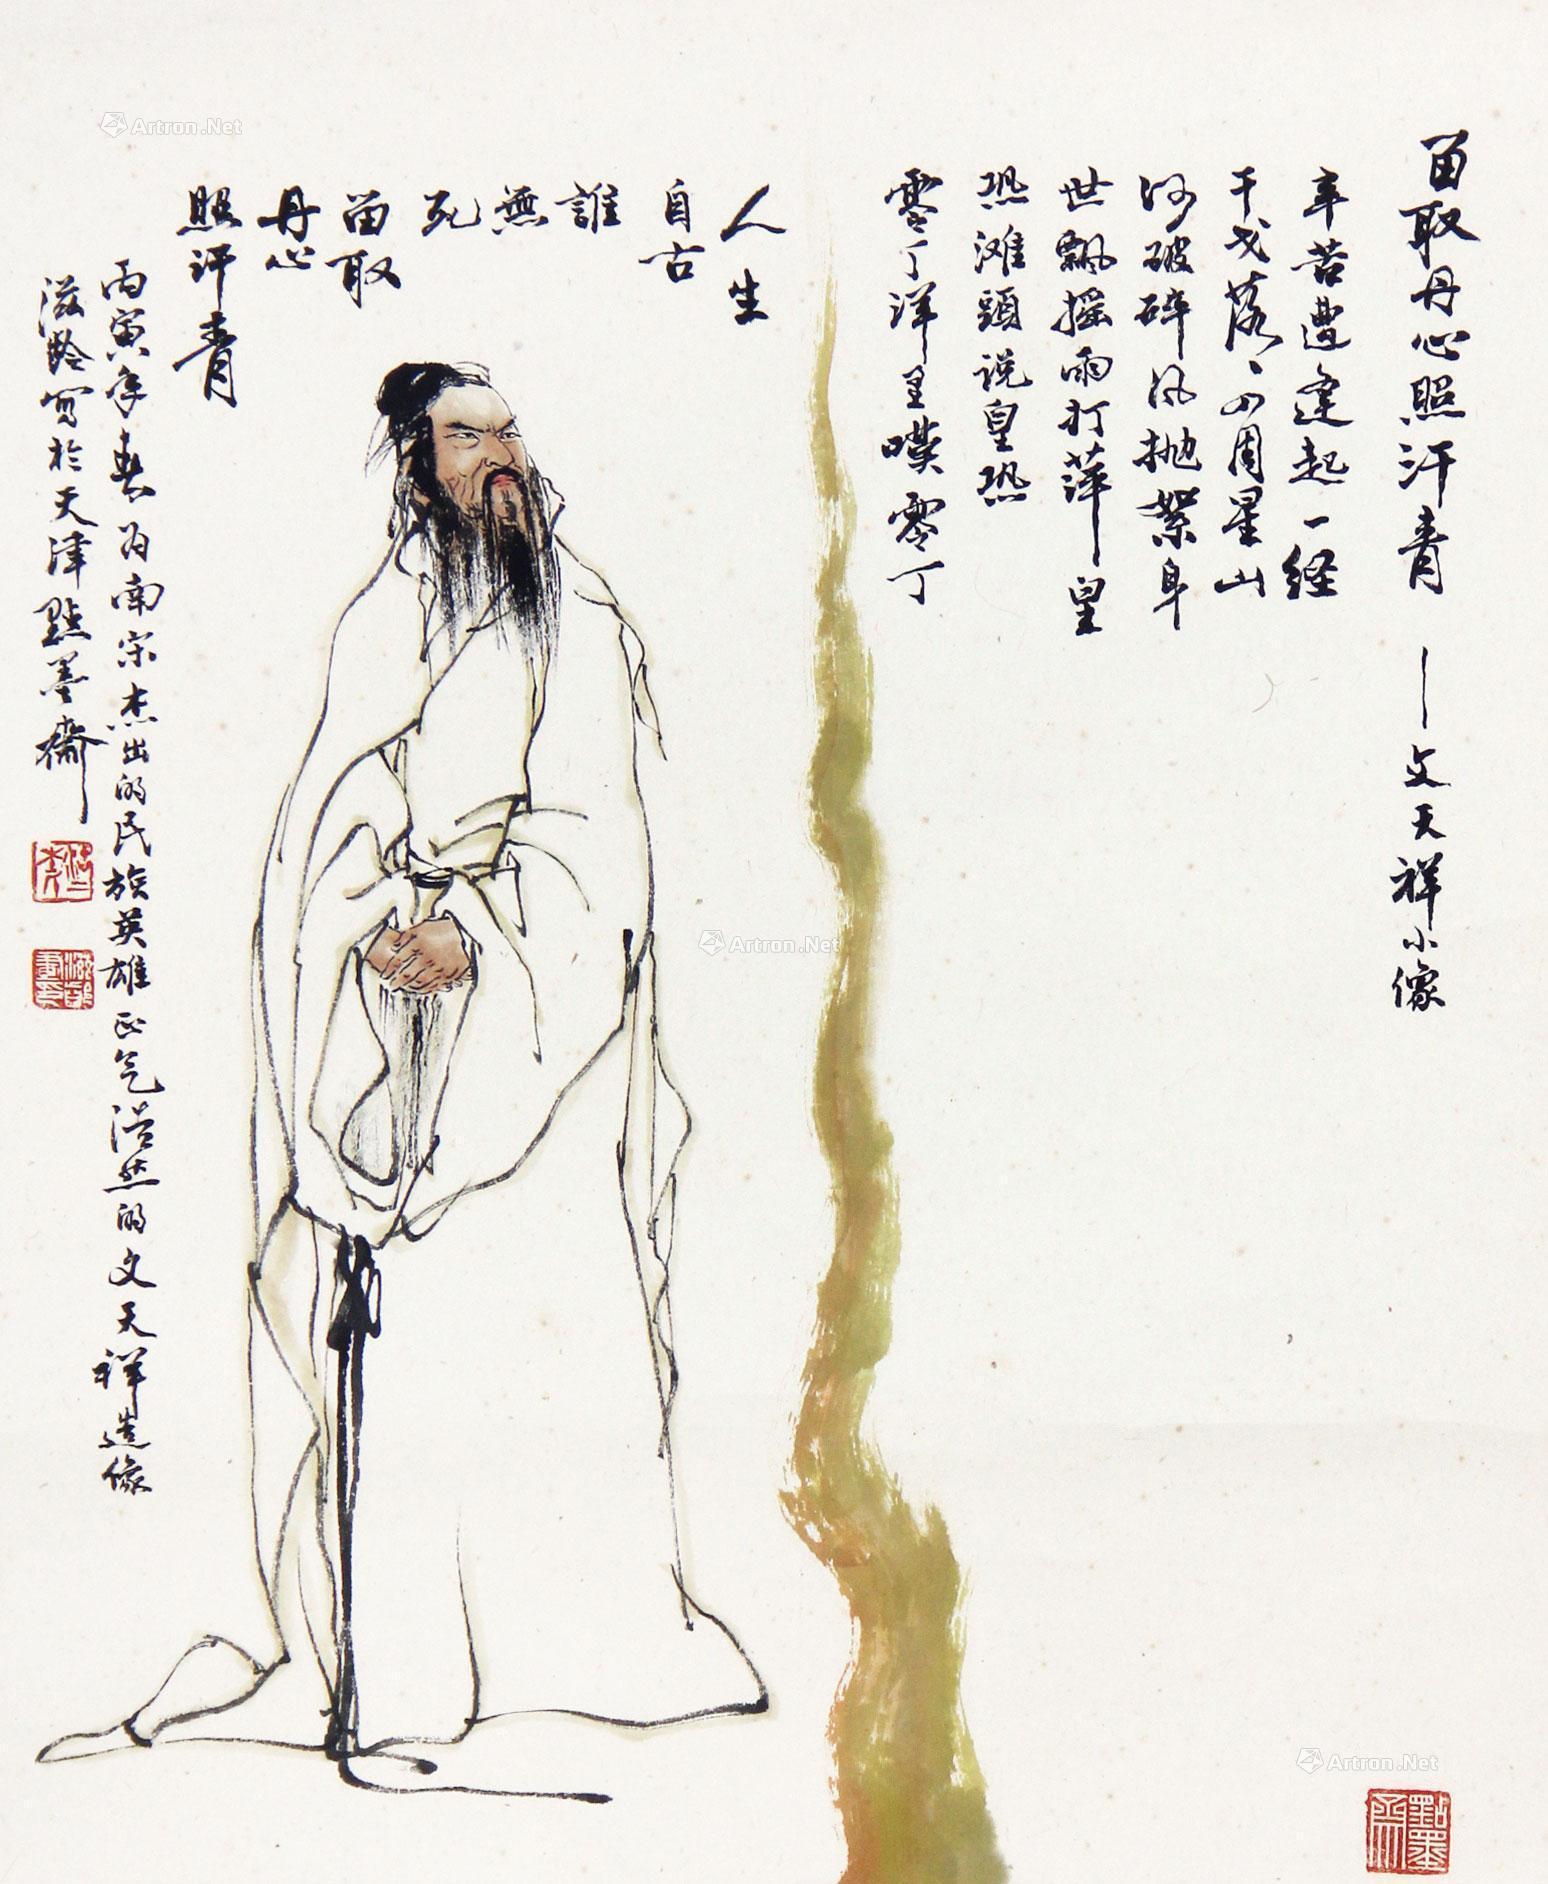 留取丹心照汗青 — 文天祥小像
辛苦遭逢起一经
干戈落々四周星山
河破碎风抛絮身
世飘摇雨打萍皇
恐滩頭说皇恐
零丁洋里嘆零丁
人生
自古
誰
無
死
留取
丹心
照汗青
丙寅年春为南宋杰出的民族英雄正气浩然的文天祥造像
滋龄写於天津點墨斋
點墨斋
Artron.Net
Artron.Net
Artron.Net